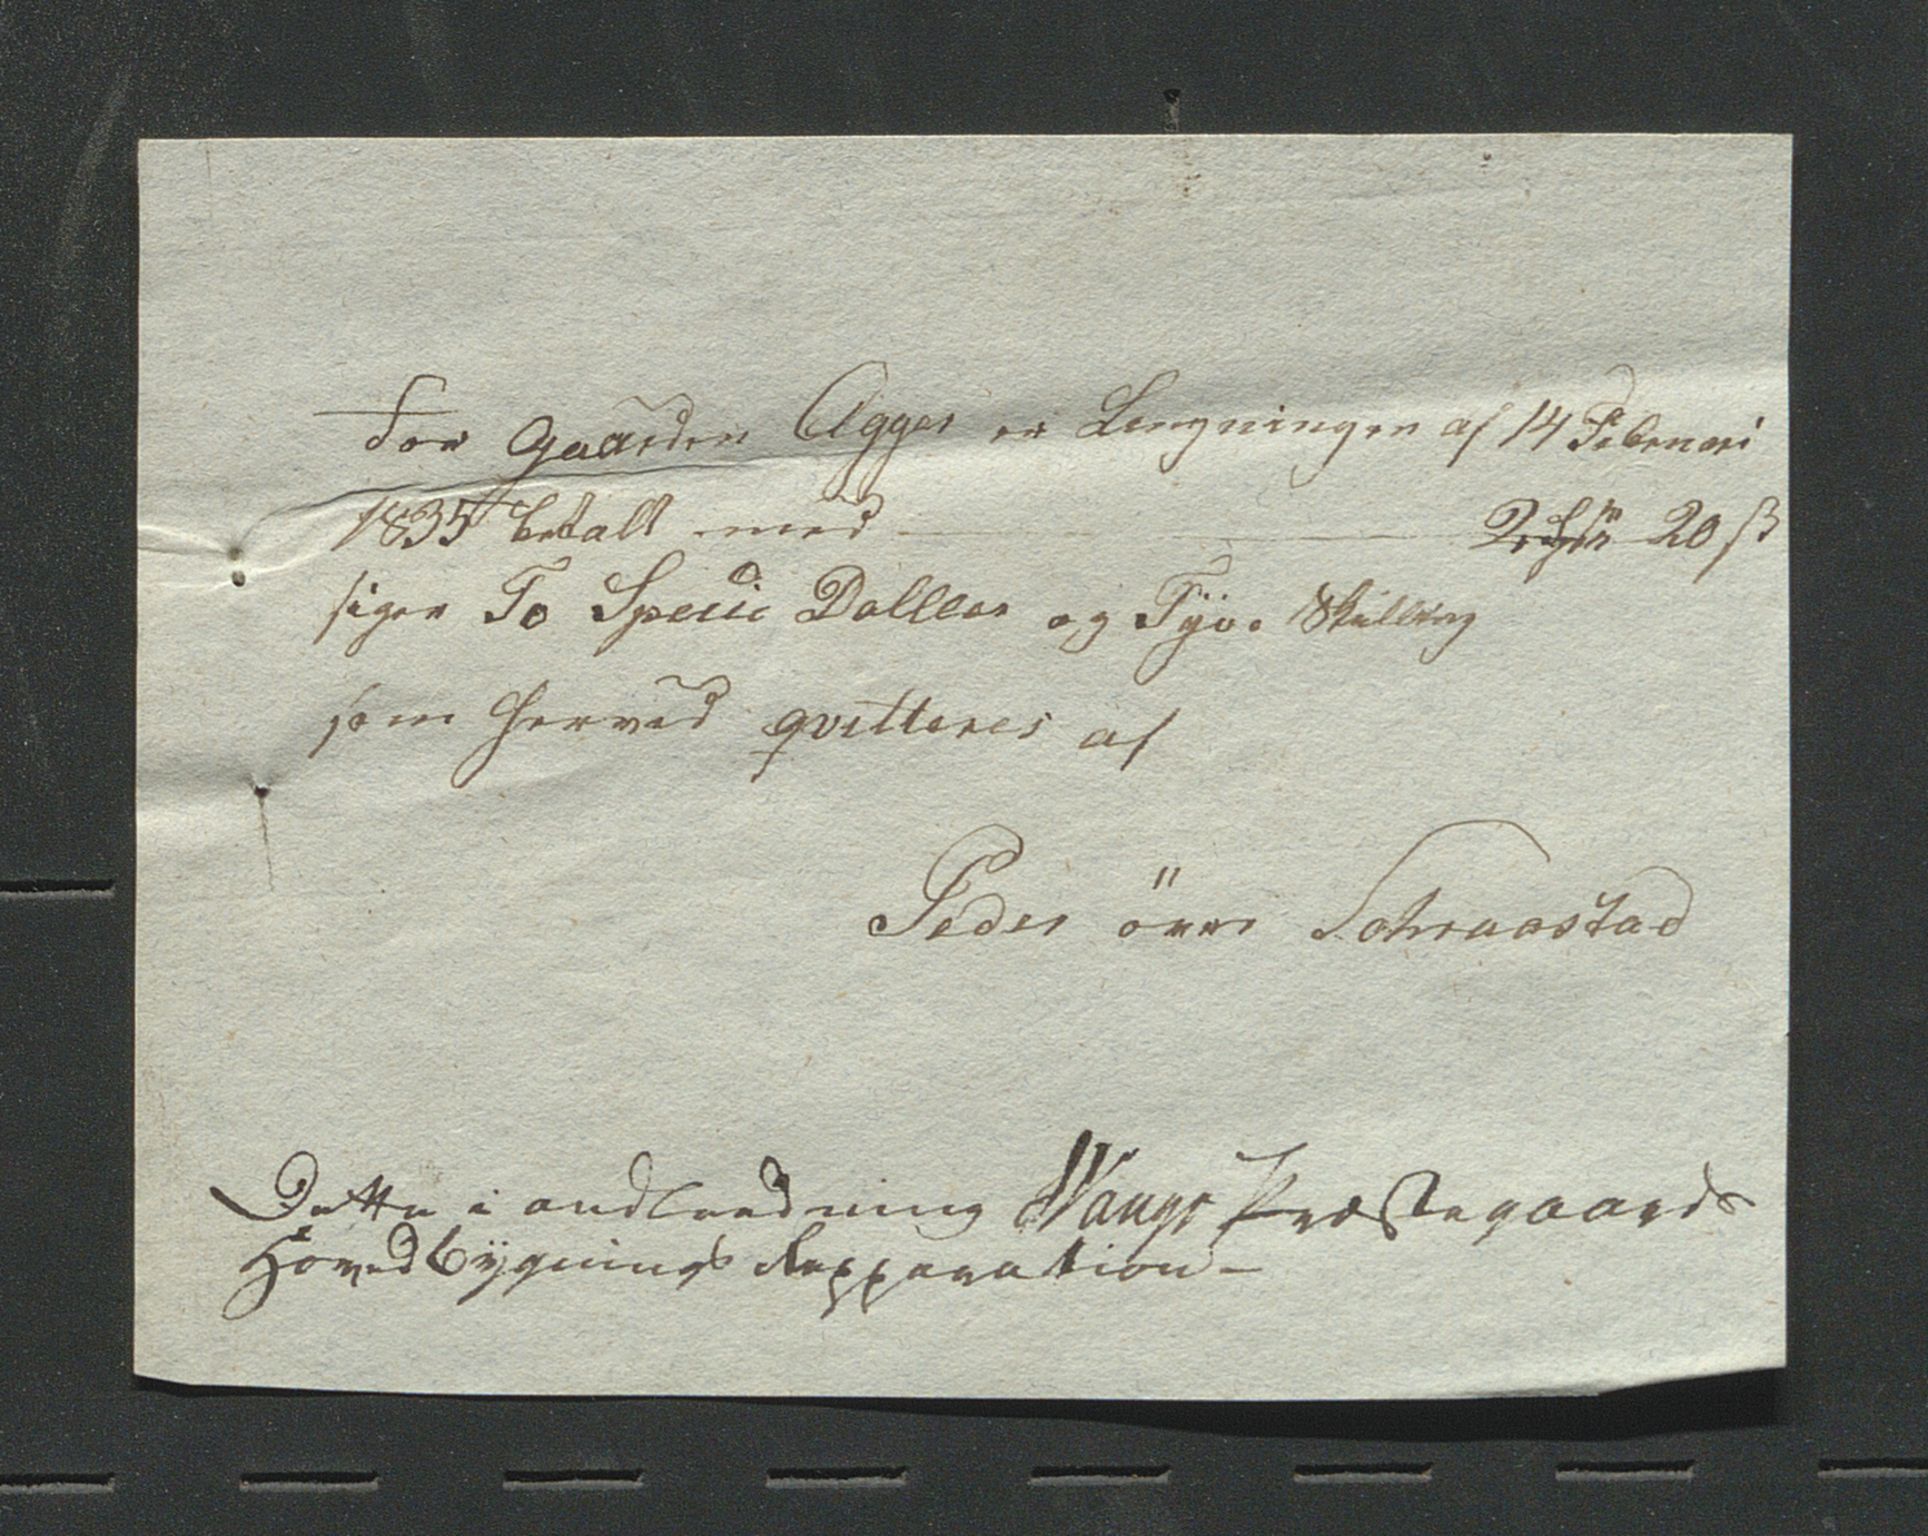 For Gaarden Agger er Ligningen af 14 Februari
1835 betalt med 2 20 ß
siger To Specie Daller og Tÿve Skilling
som herved qvitteres af
Peder övre Schraastad
Dette i andledning Wangs Præstegaards
Hovedbÿgnings Repparation -